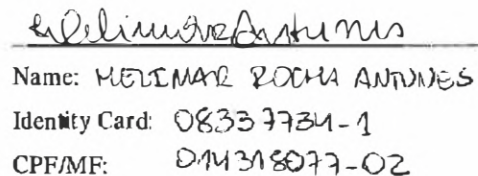 Name: MELIMAR ROCHA ANTUNES
Identity Card: 08337734-1
CPF/MF: 014318077-02